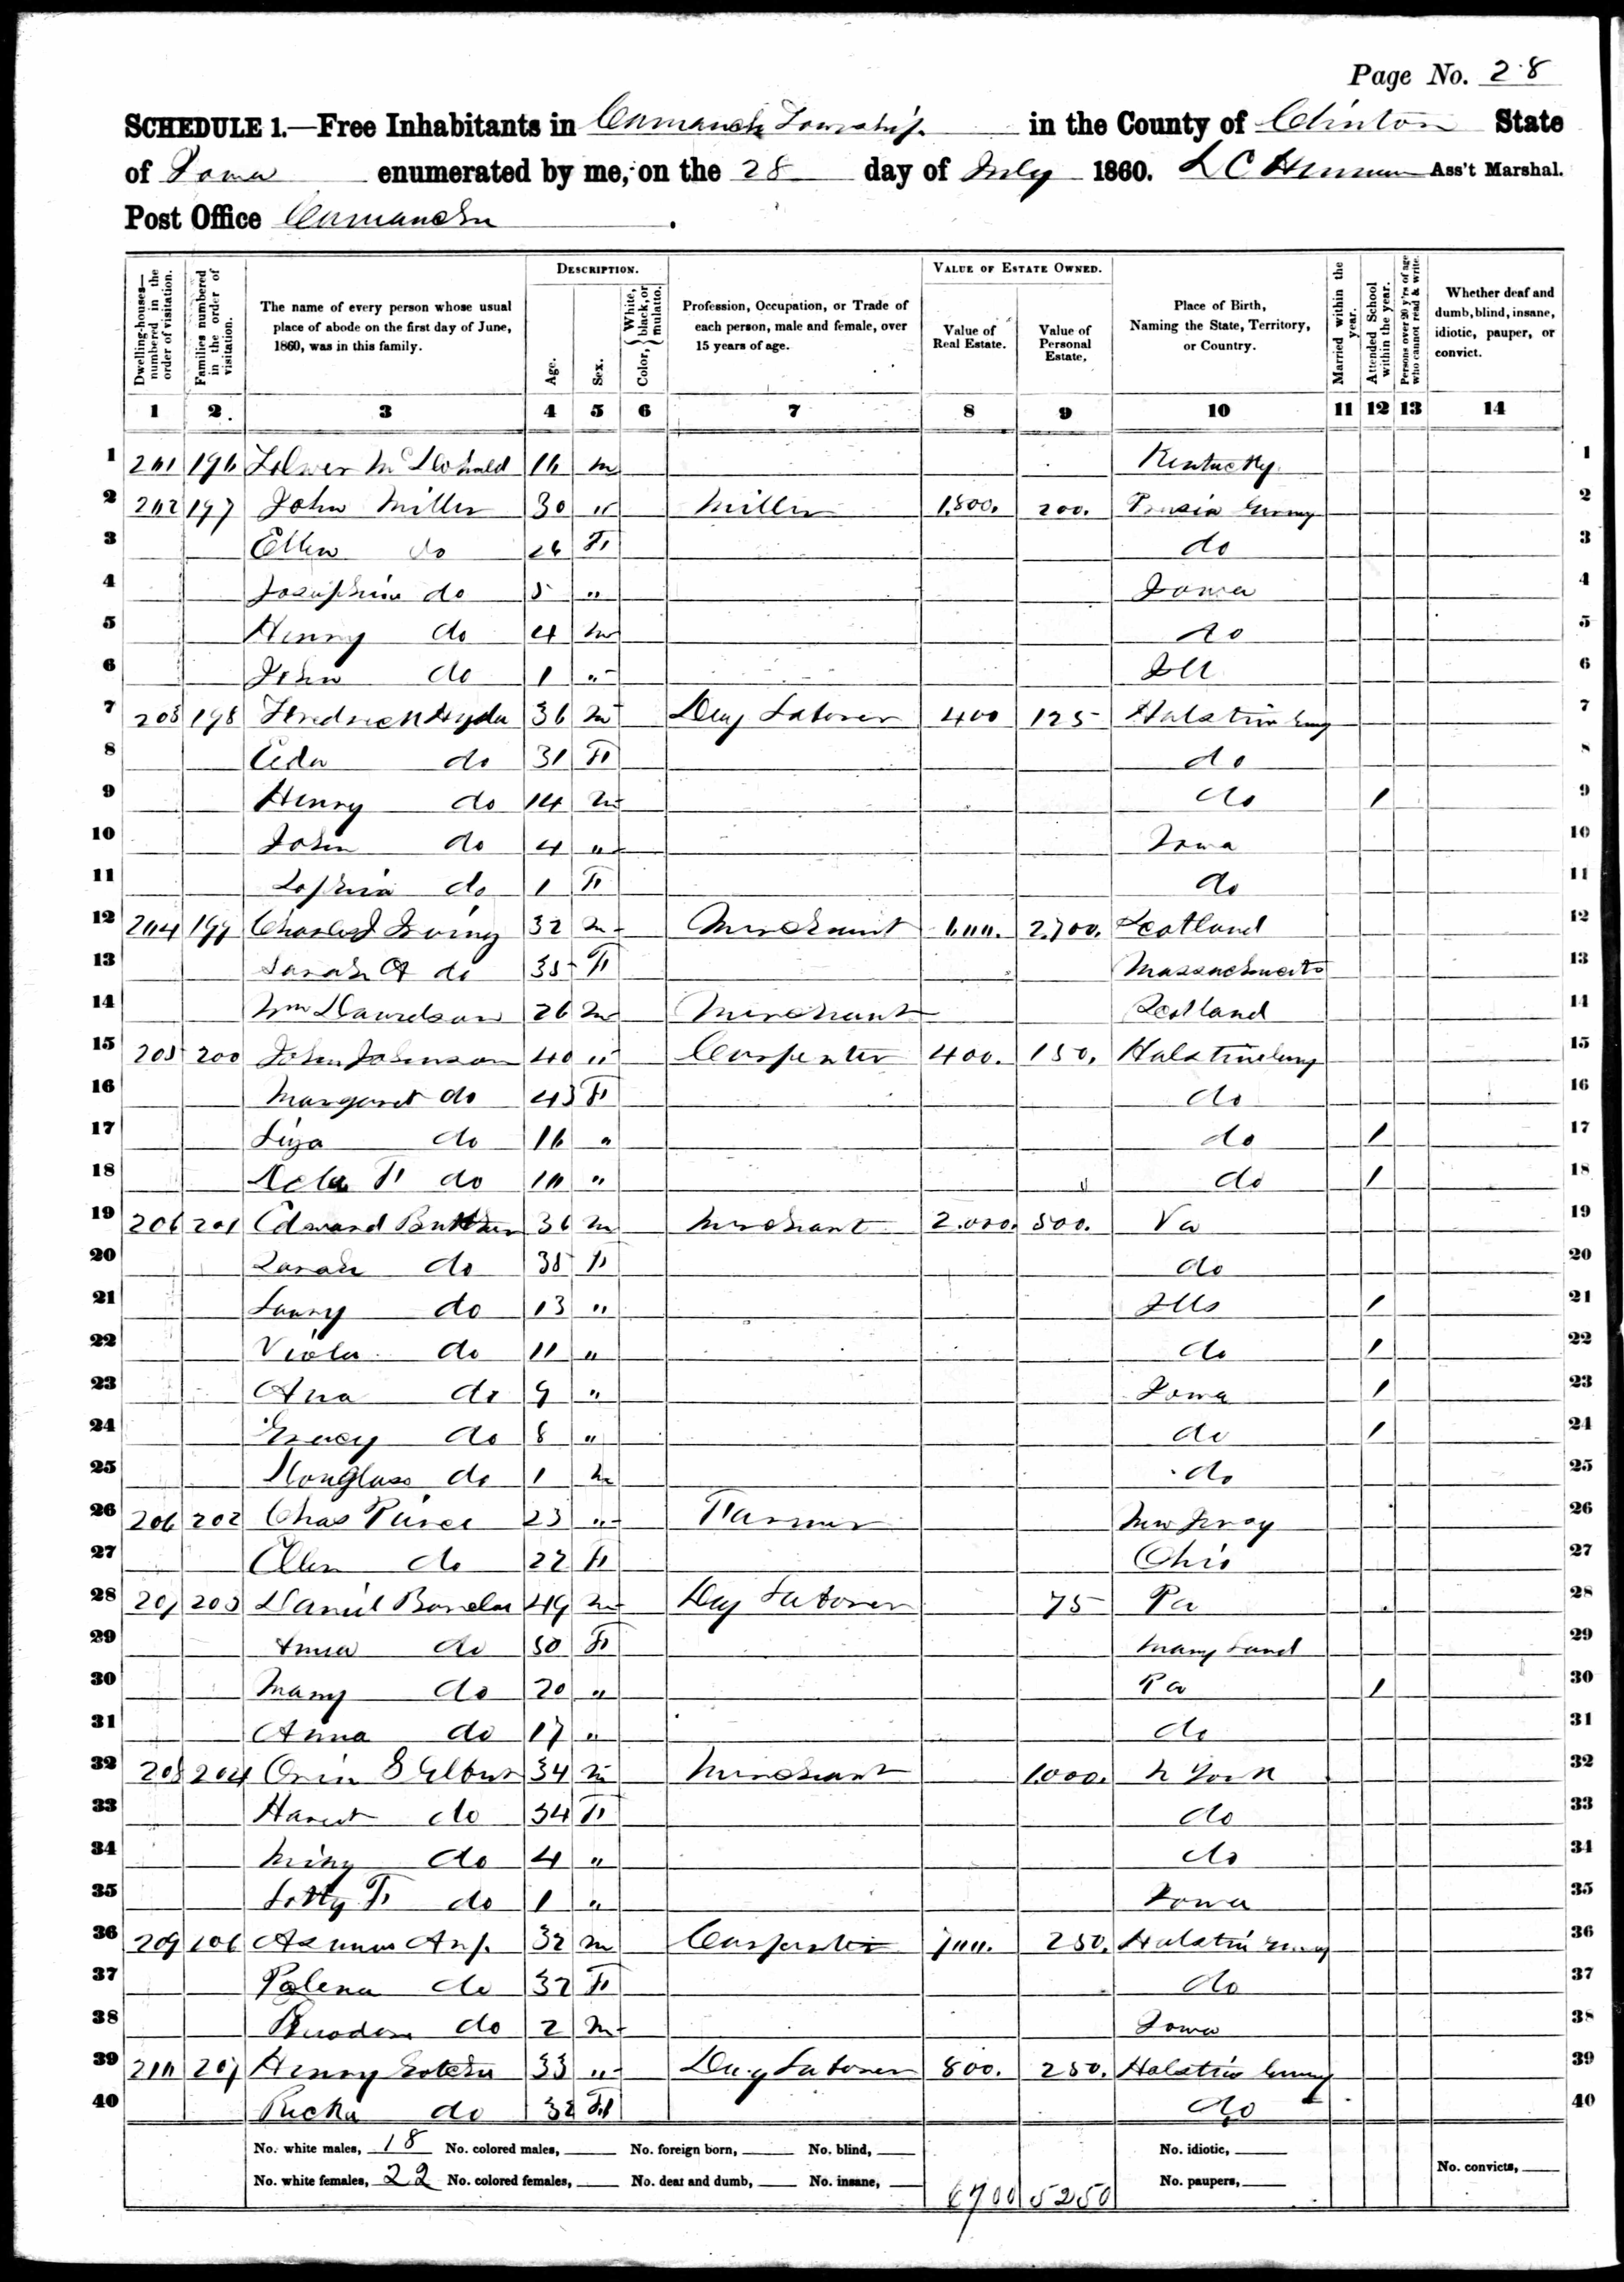 Page No. 28
SCHEDULE 1.—Free Inhabitants in Camanche Township in the County of Clinton State
of Iowa enumerated by me, on the 28 day of July 1860. L C Ass't Marshal.
Post Office Camanche.
Dwelling-houses—numbered in the order of visitation.
Families numbered in the order of visitation.
The name of every person whose usual place of abode on the first day of June, 1860, was in this family.
DESCRIPTION.
Age.
Sex.
Color, { White, black, or mulatto.
Profession, Occupation, or Trade of each person, male and female, over 15 years of age.
VALUE OF ESTATE OWNED.
Value of Real Estate.
Value of Personal Estate,
Place of Birth, Naming the State, Territory, or Country.
Married within the year.
Attended School within the year.
Persons over 20 y'rs of age who cannot read & write.
Whether deaf and dumb, blind, insane, idiotic, pauper, or convict.
1 2. 3 4 5 6 7 8 9 10 11 12 13 14
1 201 196 McDonald 16 m Kentucky 1
2 202 197 John Miller 30 " Miller 1,800. 200. Prusia Germy 2
3 Ellen do 26 F do 3
4 Josephine do 5 " Iowa 4
5 Henry do 4 m do 5
6 John do 1 " Ill 6
7 203 198 Fredrick Hyda 36 m Day Laborer 400 125 Holstein Gmy 7
8 Ceda do 31 F do 8
9 Henry do 14 m do / 9
10 John do 4 " Iowa 10
11 Sophia do 1 F do 11
12 204 199 Charles J Irving 32 m Merchant 600. 2,700. Scotland 12
13 Sarah A do 35 F Massachusets 13
14 Wm Davidson 26 m Merchant Scotland 14
15 205 200 John Johnson 40 " Carpenter 400. 150. Holstein Gmy 15
16 Margaret do 43 F do 16
17 Liza do 16 " do / 17
18 F do 10 " do / 18
19 206 201 Edward 36 m Merchant 2.000. 500. Va 19
20 Sarah do 35 F do 20
21 do 13 " Ills / 21
22 Viola do 11 " do / 22
23 Ana do 9 " Iowa / 23
24 Gracy do 8 " do / 24
25 Douglass do 1 m do 25
26 206 202 Chas Pierce 23 " Farmer New Jersy 26
27 Ellen do 22 F Ohio 27
28 207 203 Daniel 49 m Day Laborer 75 Pa 28
29 do 50 F Mary Land 29
30 Mary do 20 " Pa / 30
31 Anna do 17 " do 31
32 208 204 Orin S 34 m Merchant 1.000. N York 32
33 do 34 F do 33
34 do 4 " do 34
35 Lotty F do 1 " Iowa 35
36 209 106 Asmus Arp. 32 m Carpenter 700. 250. Holstein Gmy 36
37 Polena do 32 F do 37
38 do 2 m Iowa 38
39 210 207 Henry 33 " Day Laborer 800. 250. Holstein Gmy 39
40 Richa do 32 F do 40
No. white males, 18 No. colored males, No. foreign born, No. blind, No. idiotic,
No. white females, 22 No. colored females, No. deaf and dumb, No. insane, 6700 5250 No. paupers, No. convicts,